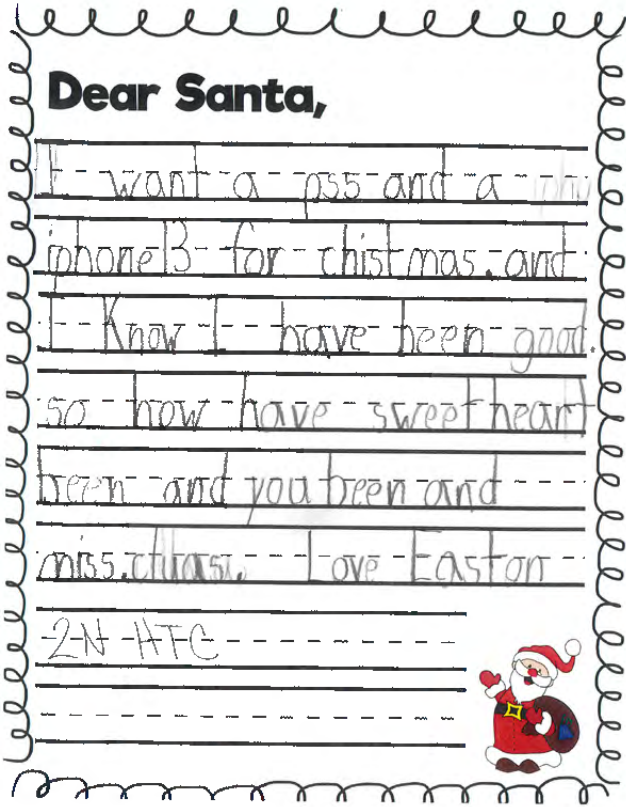 Dear Santa,
I want a ps5 and a
iphone13 for chistmas. and
I Know I have been good.
so how have sweet heart
been and you been and
miss. Love Easton
2N HTC